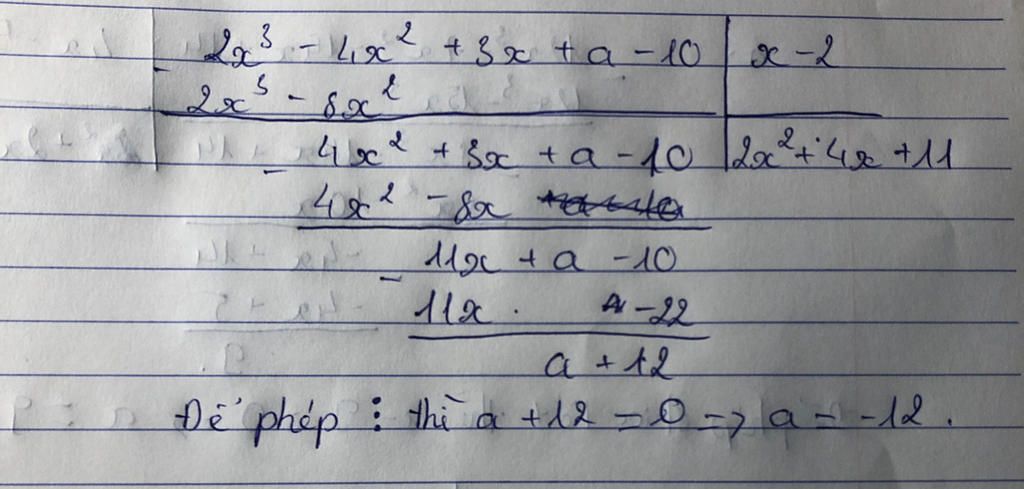 2x³ - 4x² + 3x + a - 10 | x - 2
- 2x³ - 8x²
4x² + 3x + a - 10 | 2x² + 4x + 11
- 4x² - 8x
11x + a - 10
- 11x - 22
a + 12
Để phép ⋮ thì a + 12 = 0 => a = -12.